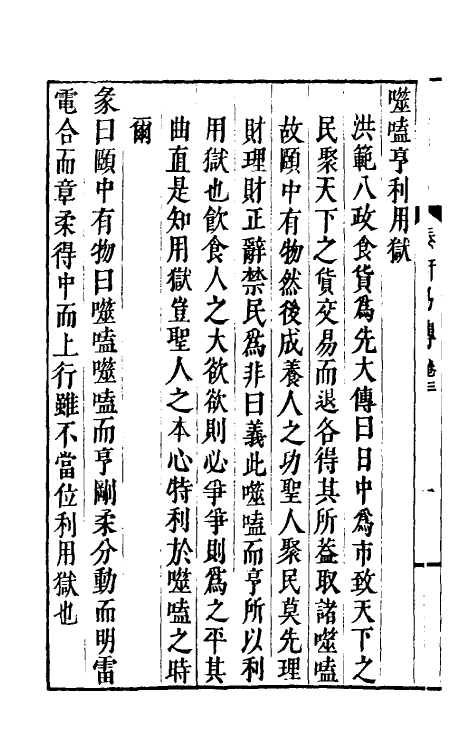 噬嗑亨利用獄
洪範八政食貨爲先大傳曰日中爲市致天下之
民聚天下之貨交易而退各得其所葢取諸噬嗑
故頤中有物然後成養人之功聖人聚民莫先理
財理財正辭禁民爲非曰義此噬嗑而亨所以利
用獄也飲食人之大欲欲則必爭爭則爲之平其
曲直是知用獄豈聖人之本心特利於噬嗑之時
爾
彖曰頤中有物曰噬嗑噬嗑而亨剛柔分動而明雷
電合而章柔得中而上行雖不當位利用獄也